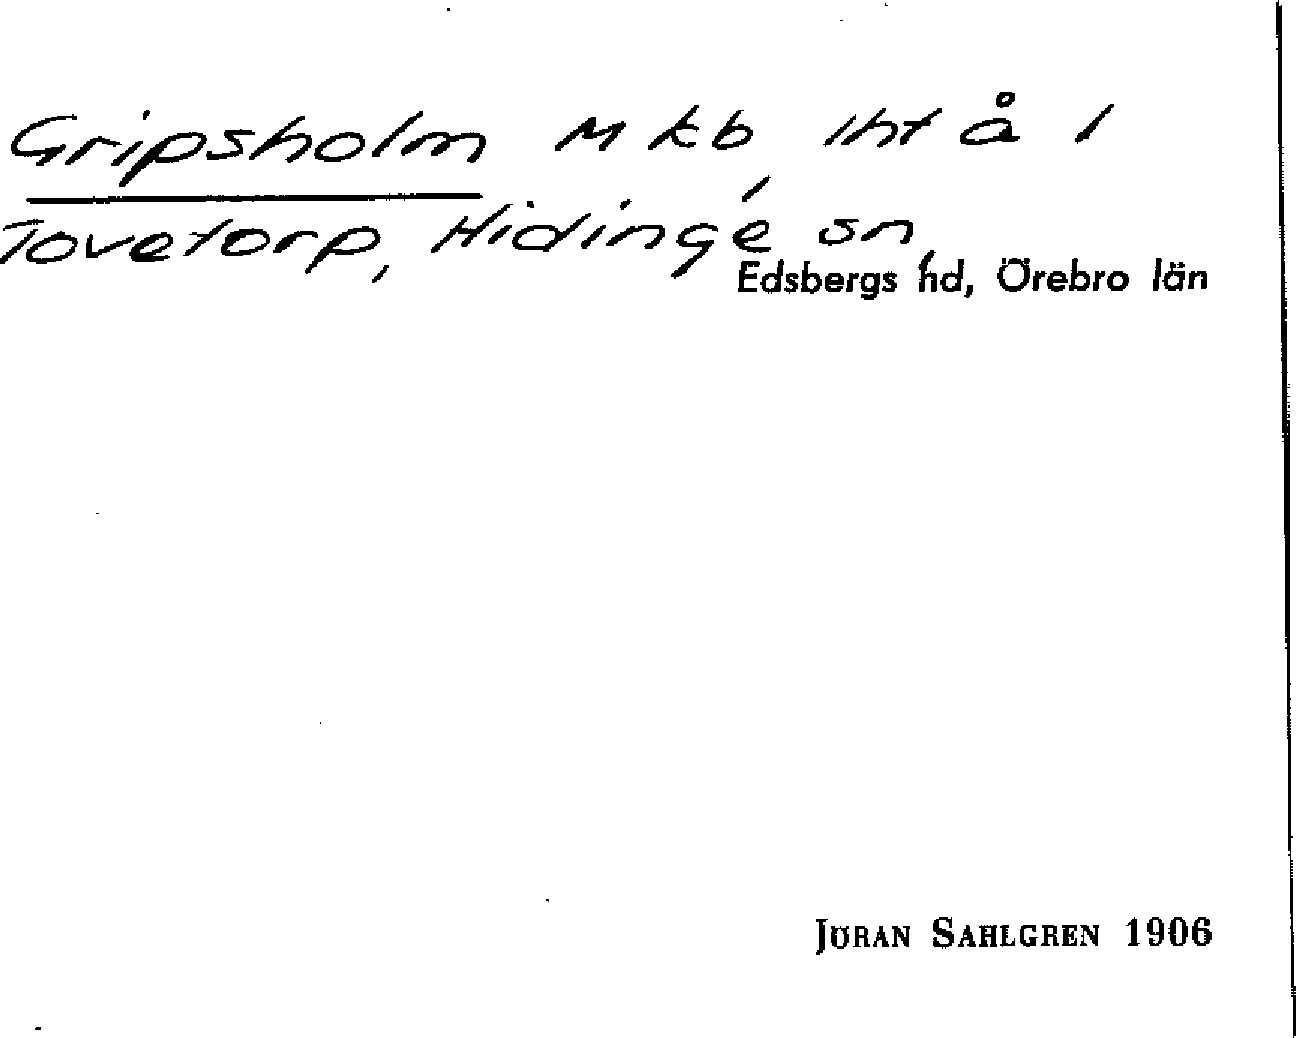 Gripsholm M kb iht å 1
Tovetorp, Hidinge sn,
Edsbergs hd, Örebro län
JÖRAN SAHLGREN 1906